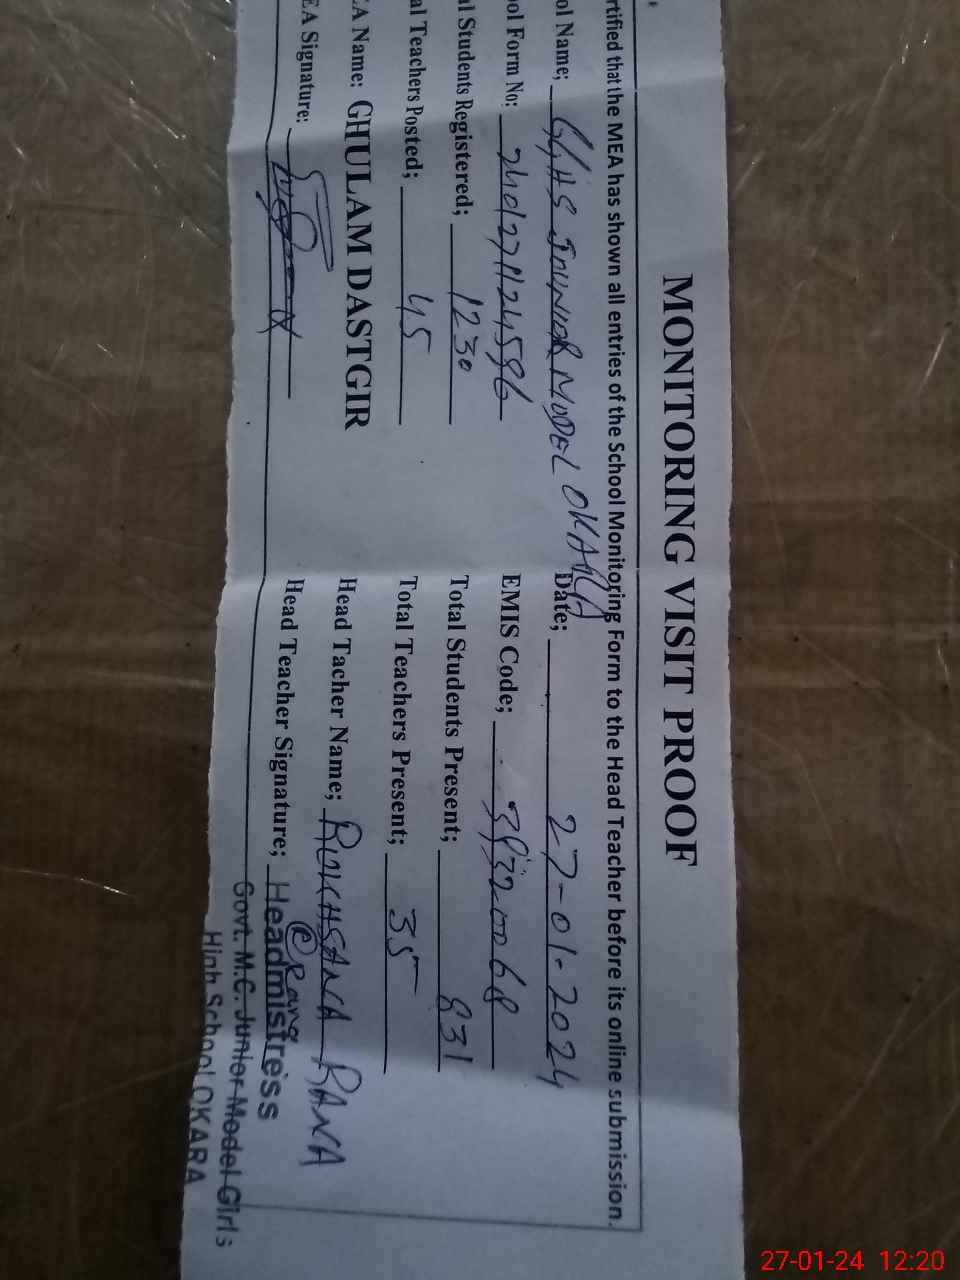 MONITORING VISIT PROOF
rtified that the MEA has shown all entries of the School Monitoring Form to the Head Teacher before its online submission.
ol Name; GGHS JUNIOR MODEL OKARA Date; 27-01-2024
ool Form No: EMIS Code; 39320068
al Students Registered; 1230 Total Students Present; 831
al Teachers Posted; 45 Total Teachers Present; 35
EA Name: GHULAM DASTGIR Head Tacher Name; RUKHSANA RANA
EA Signature: Head Teacher Signature; Rana
Headmistress
Govt. M.C. Junior Model Girls
High School OKARA
27-01-24 12:20